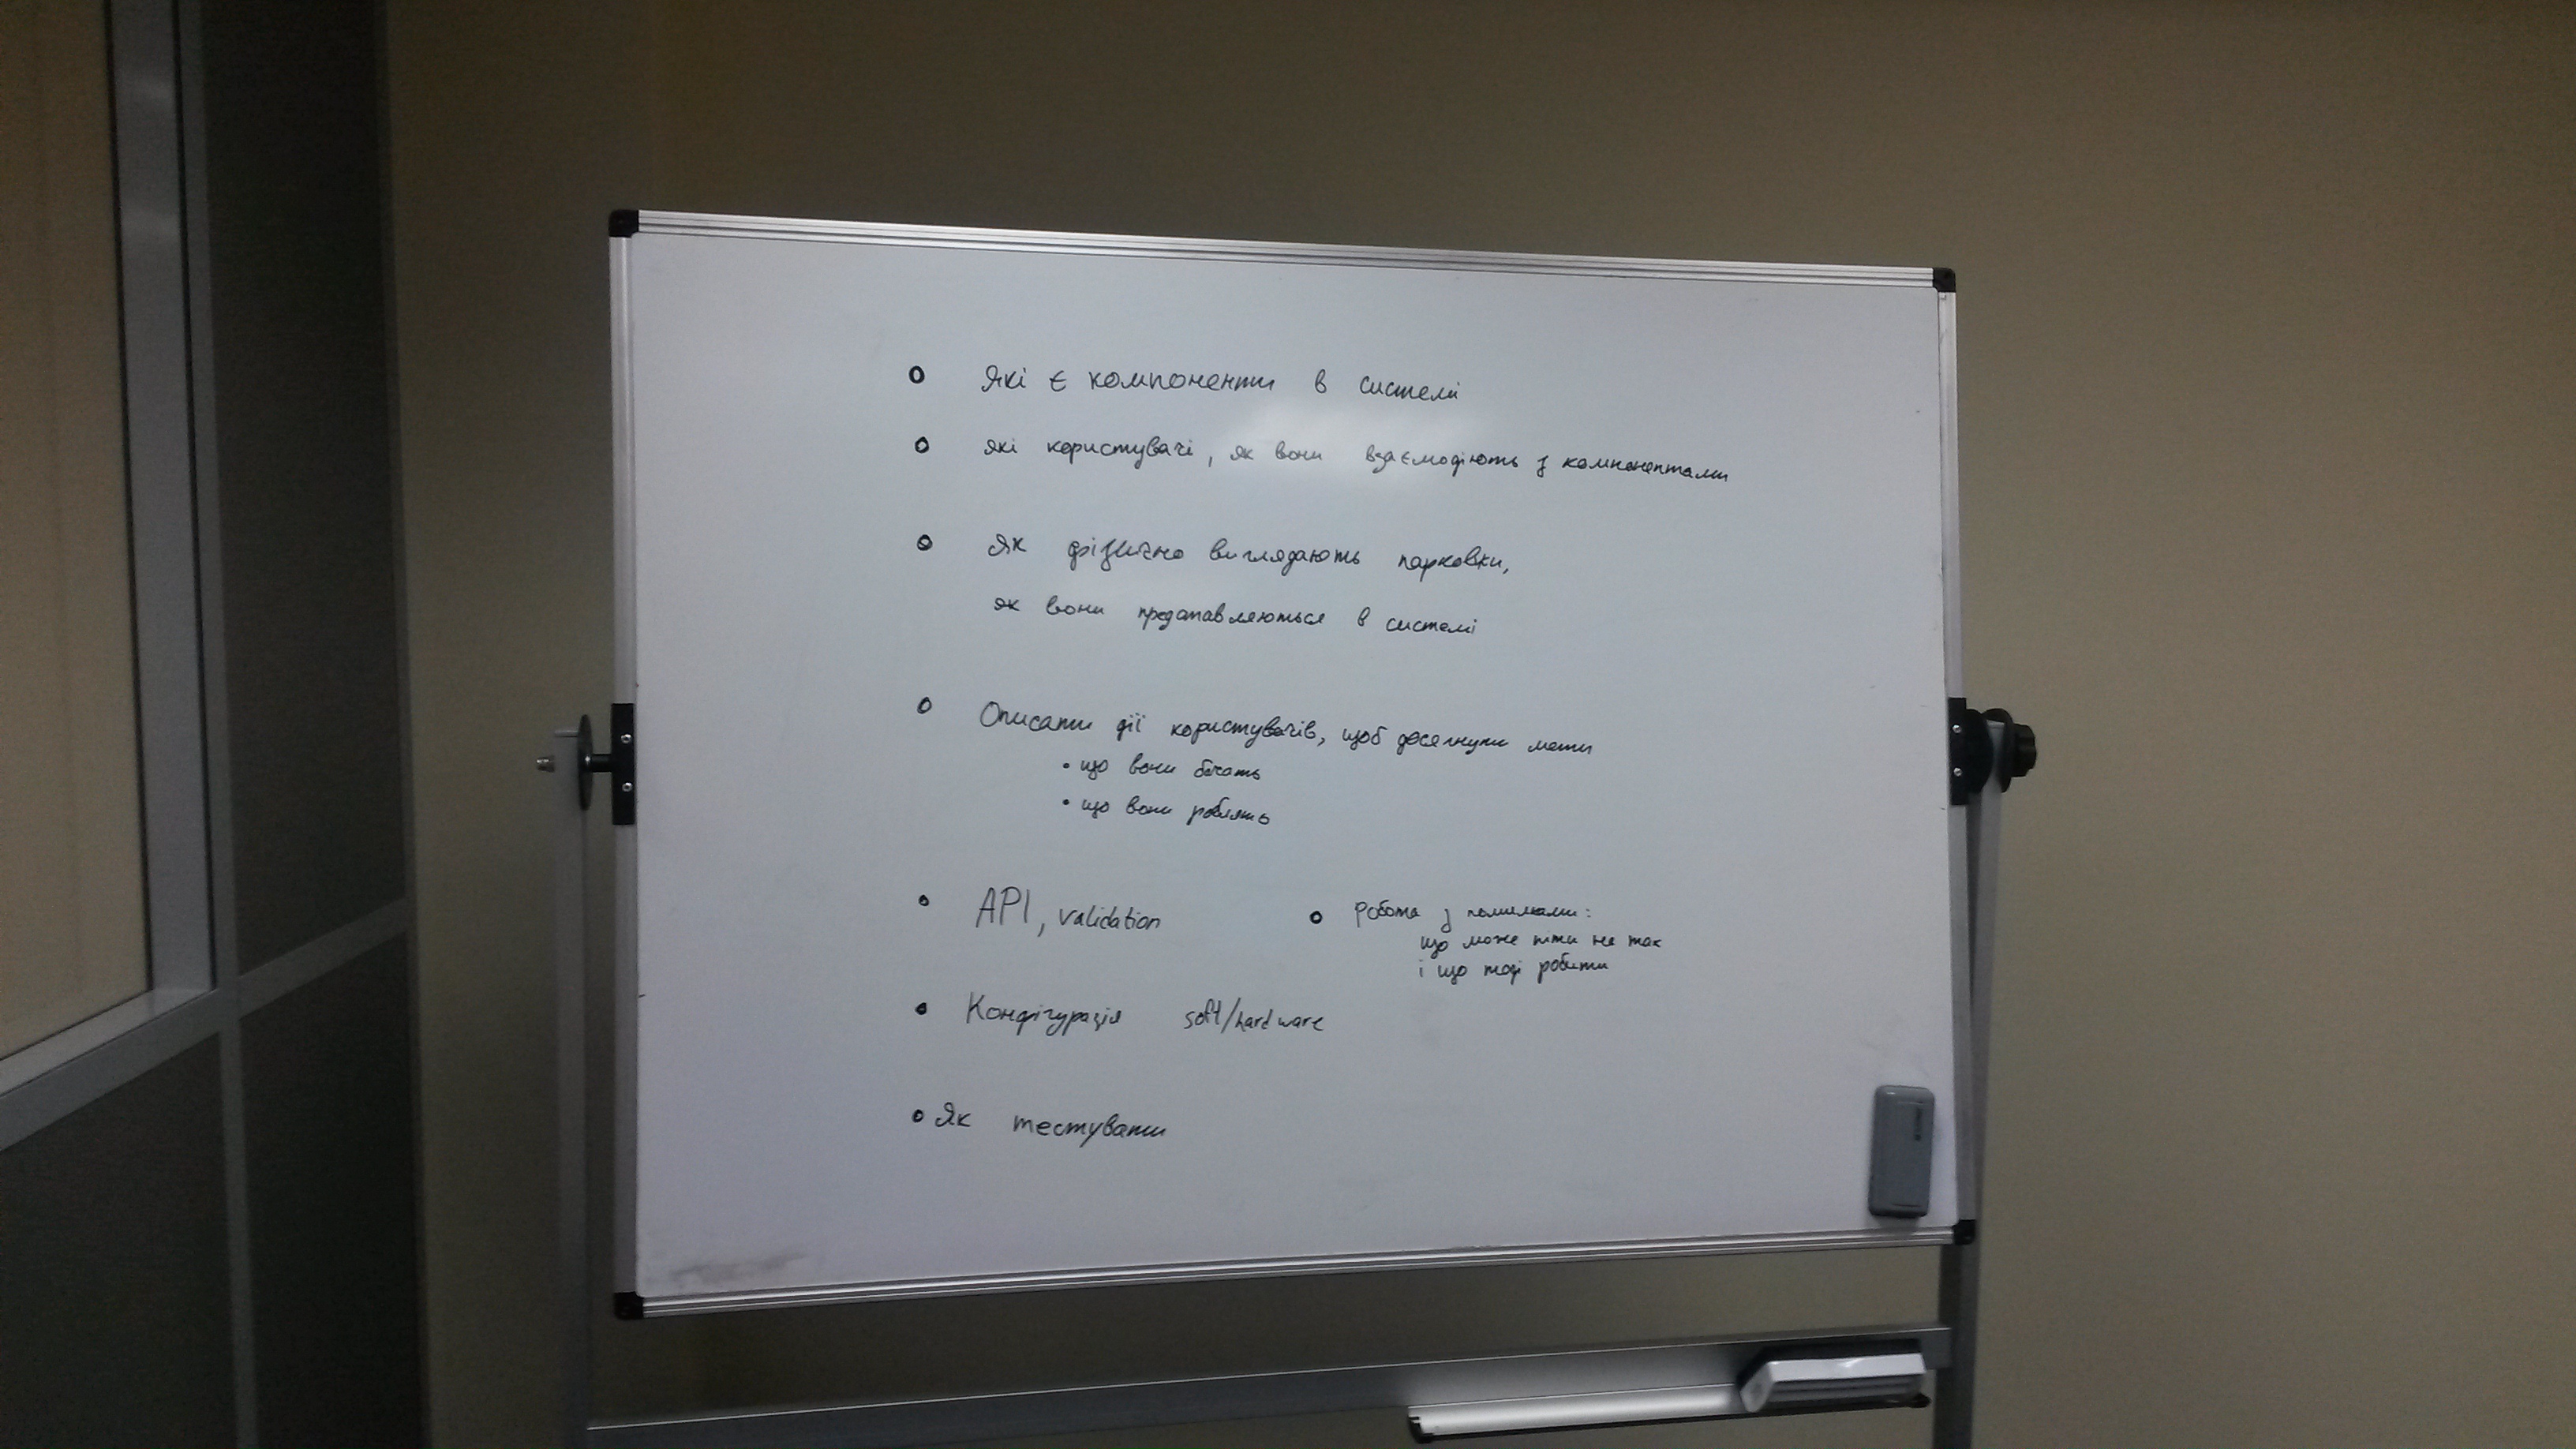 Які є компоненти в системі
які користувачі, як вони взаємодіють з компонентами
Як фізично виглядають парковки,
як вони представляються в системі
Описати дії користувачів, щоб досягнути мети
• що вони бачать
• що вони роблять
API, validation
Робота з помилками:
що може піти не так
і що тоді робити
Конфігурація soft/hardware
Як тестувати